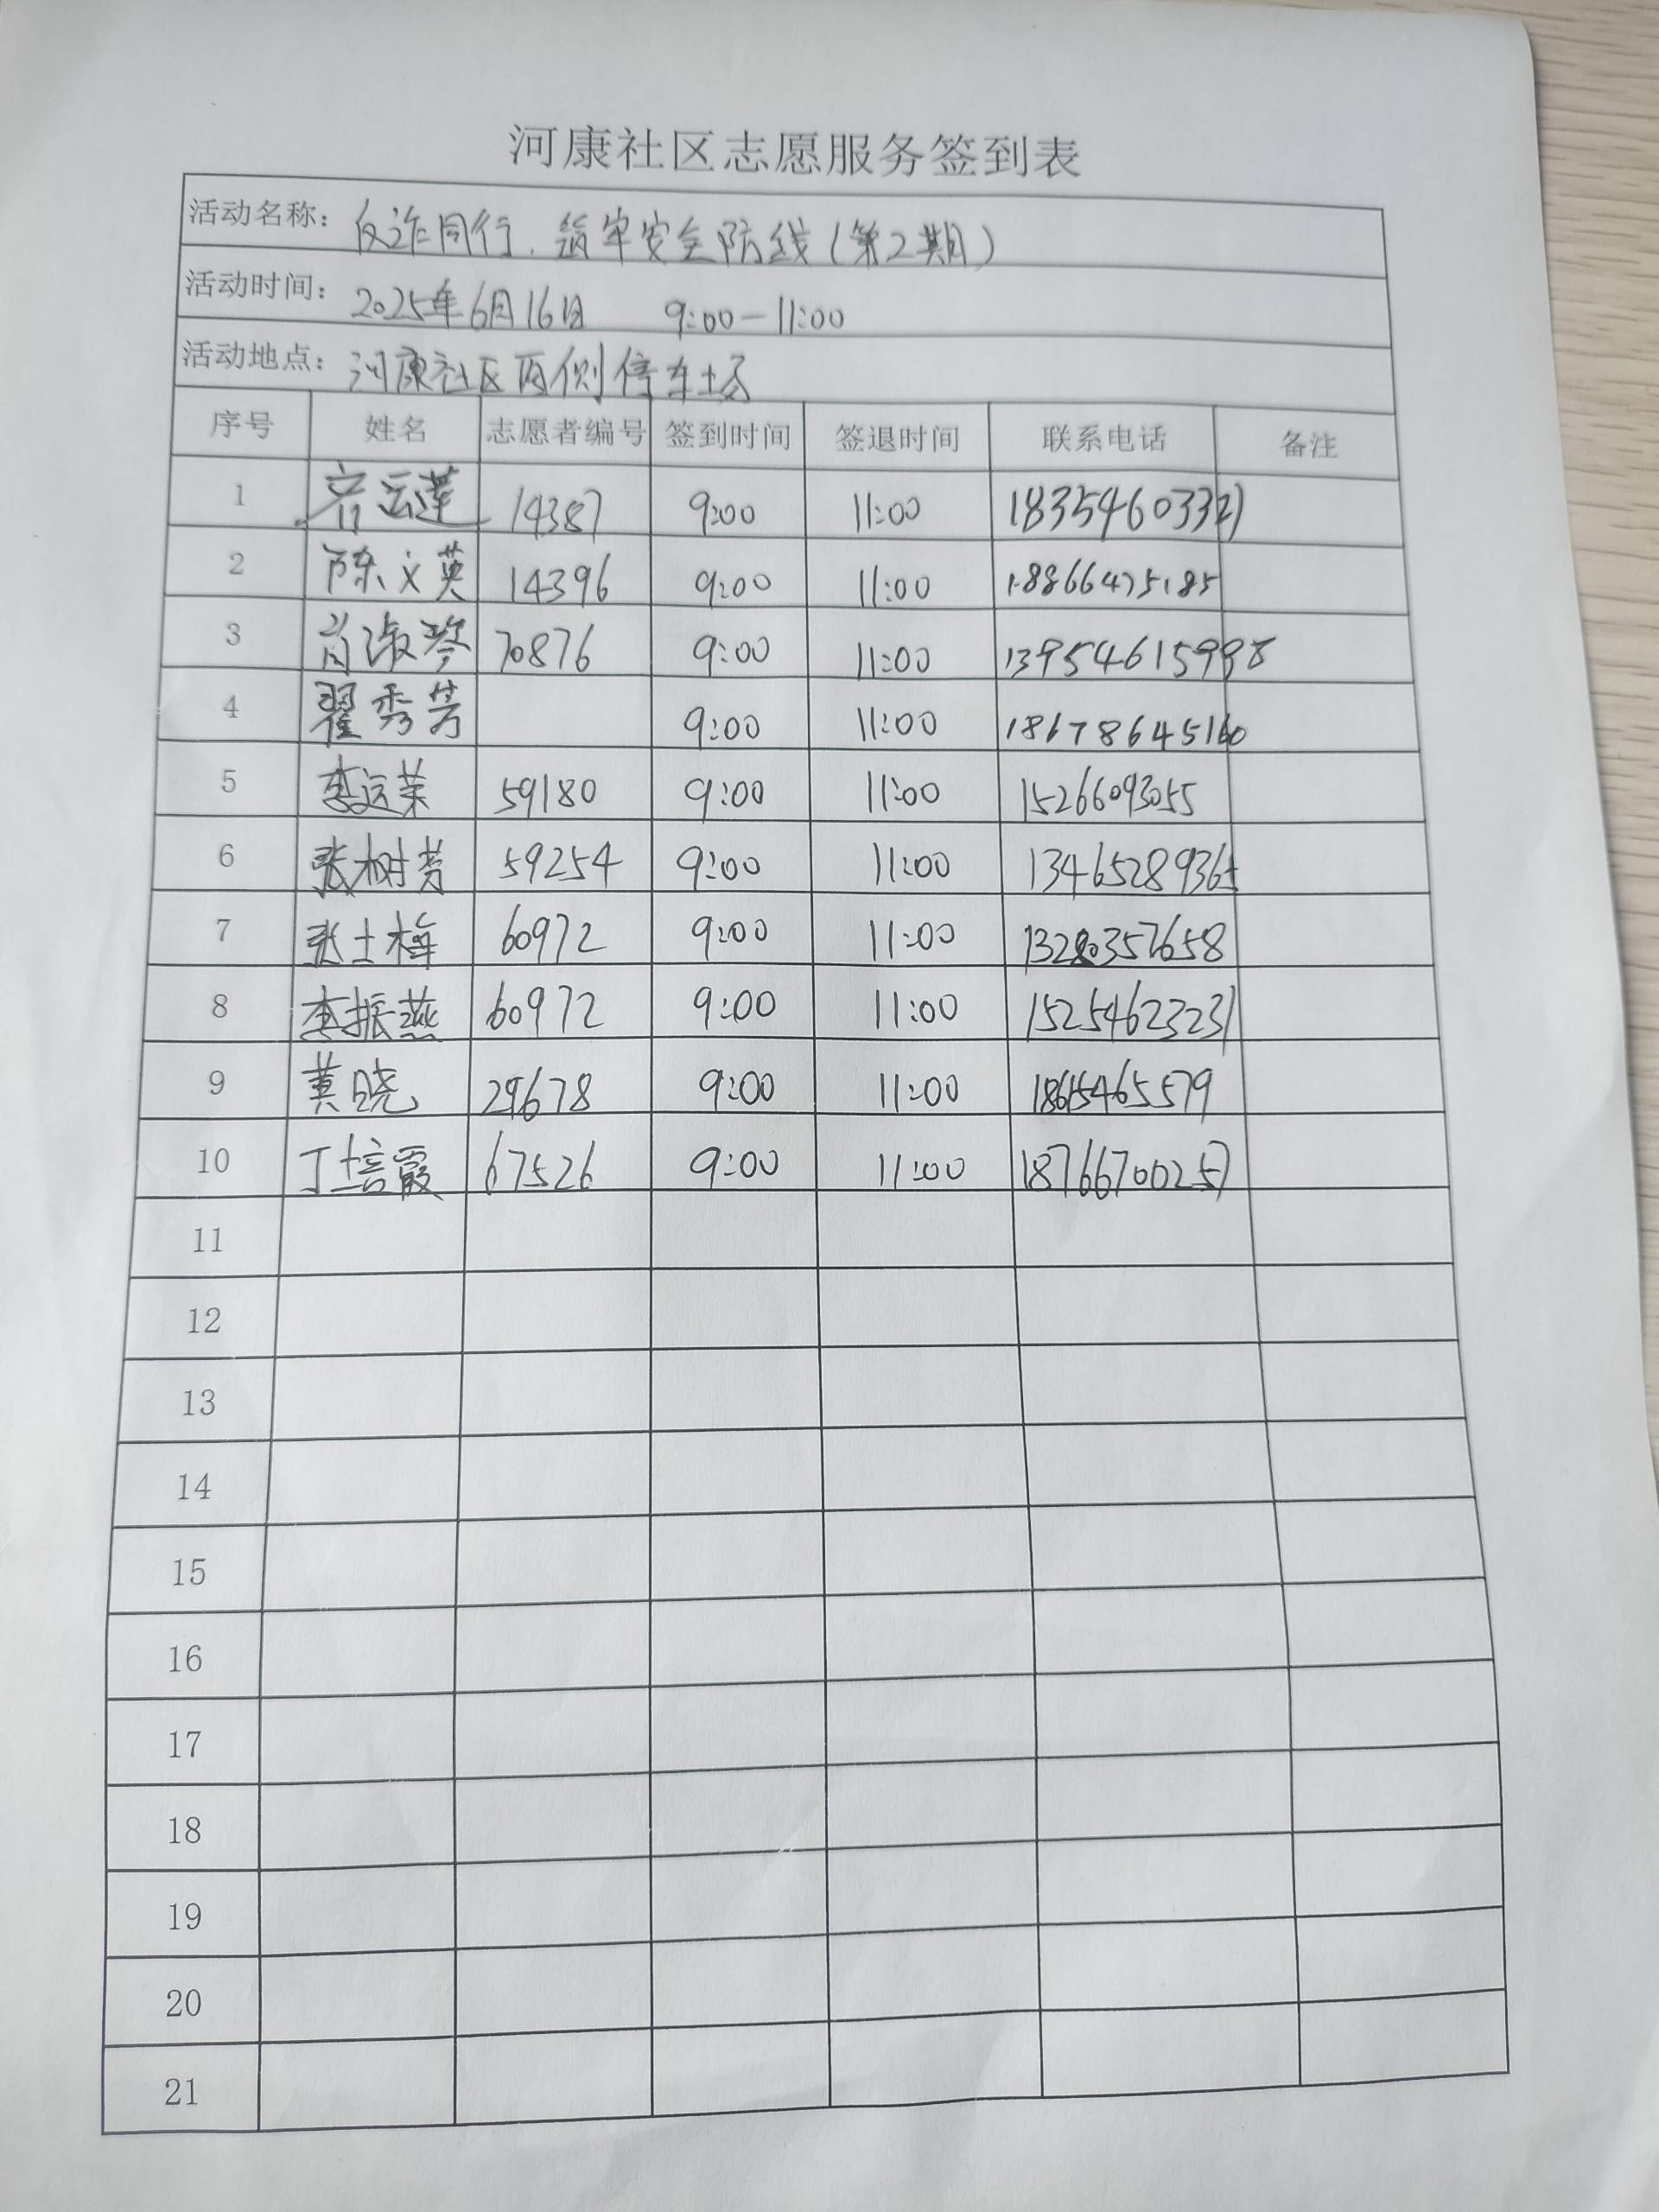 河康社区志愿服务签到表
活动名称: 反诈同行、筑牢安全防线(第2期)
活动时间: 2025年6月16日 9:00-11:00
活动地点: 河康社区西侧停车场
序号 姓名 志愿者编号 签到时间 签退时间 联系电话 备注
1 齐云莲 14387 9:00 11:00
2 陈文英 14396 9:00 11:00 18866475185
3 肖淑琴 70876 9:00 11:00 13954615998
4 翟秀芳 9:00 11:00 18678645160
5 李运荣 59180 9:00 11:00 15266093055
6 张树芳 59254 9:00 11:00 13465289365
7 张士梅 60972 9:00 11:00 13280357658
8 李振燕 60972 9:00 11:00 15254623231
9 黄晓 29678 9:00 11:00
10 丁培霞 67526 9:00 11:00 18766700257
11
12
13
14
15
16
17
18
19
20
21